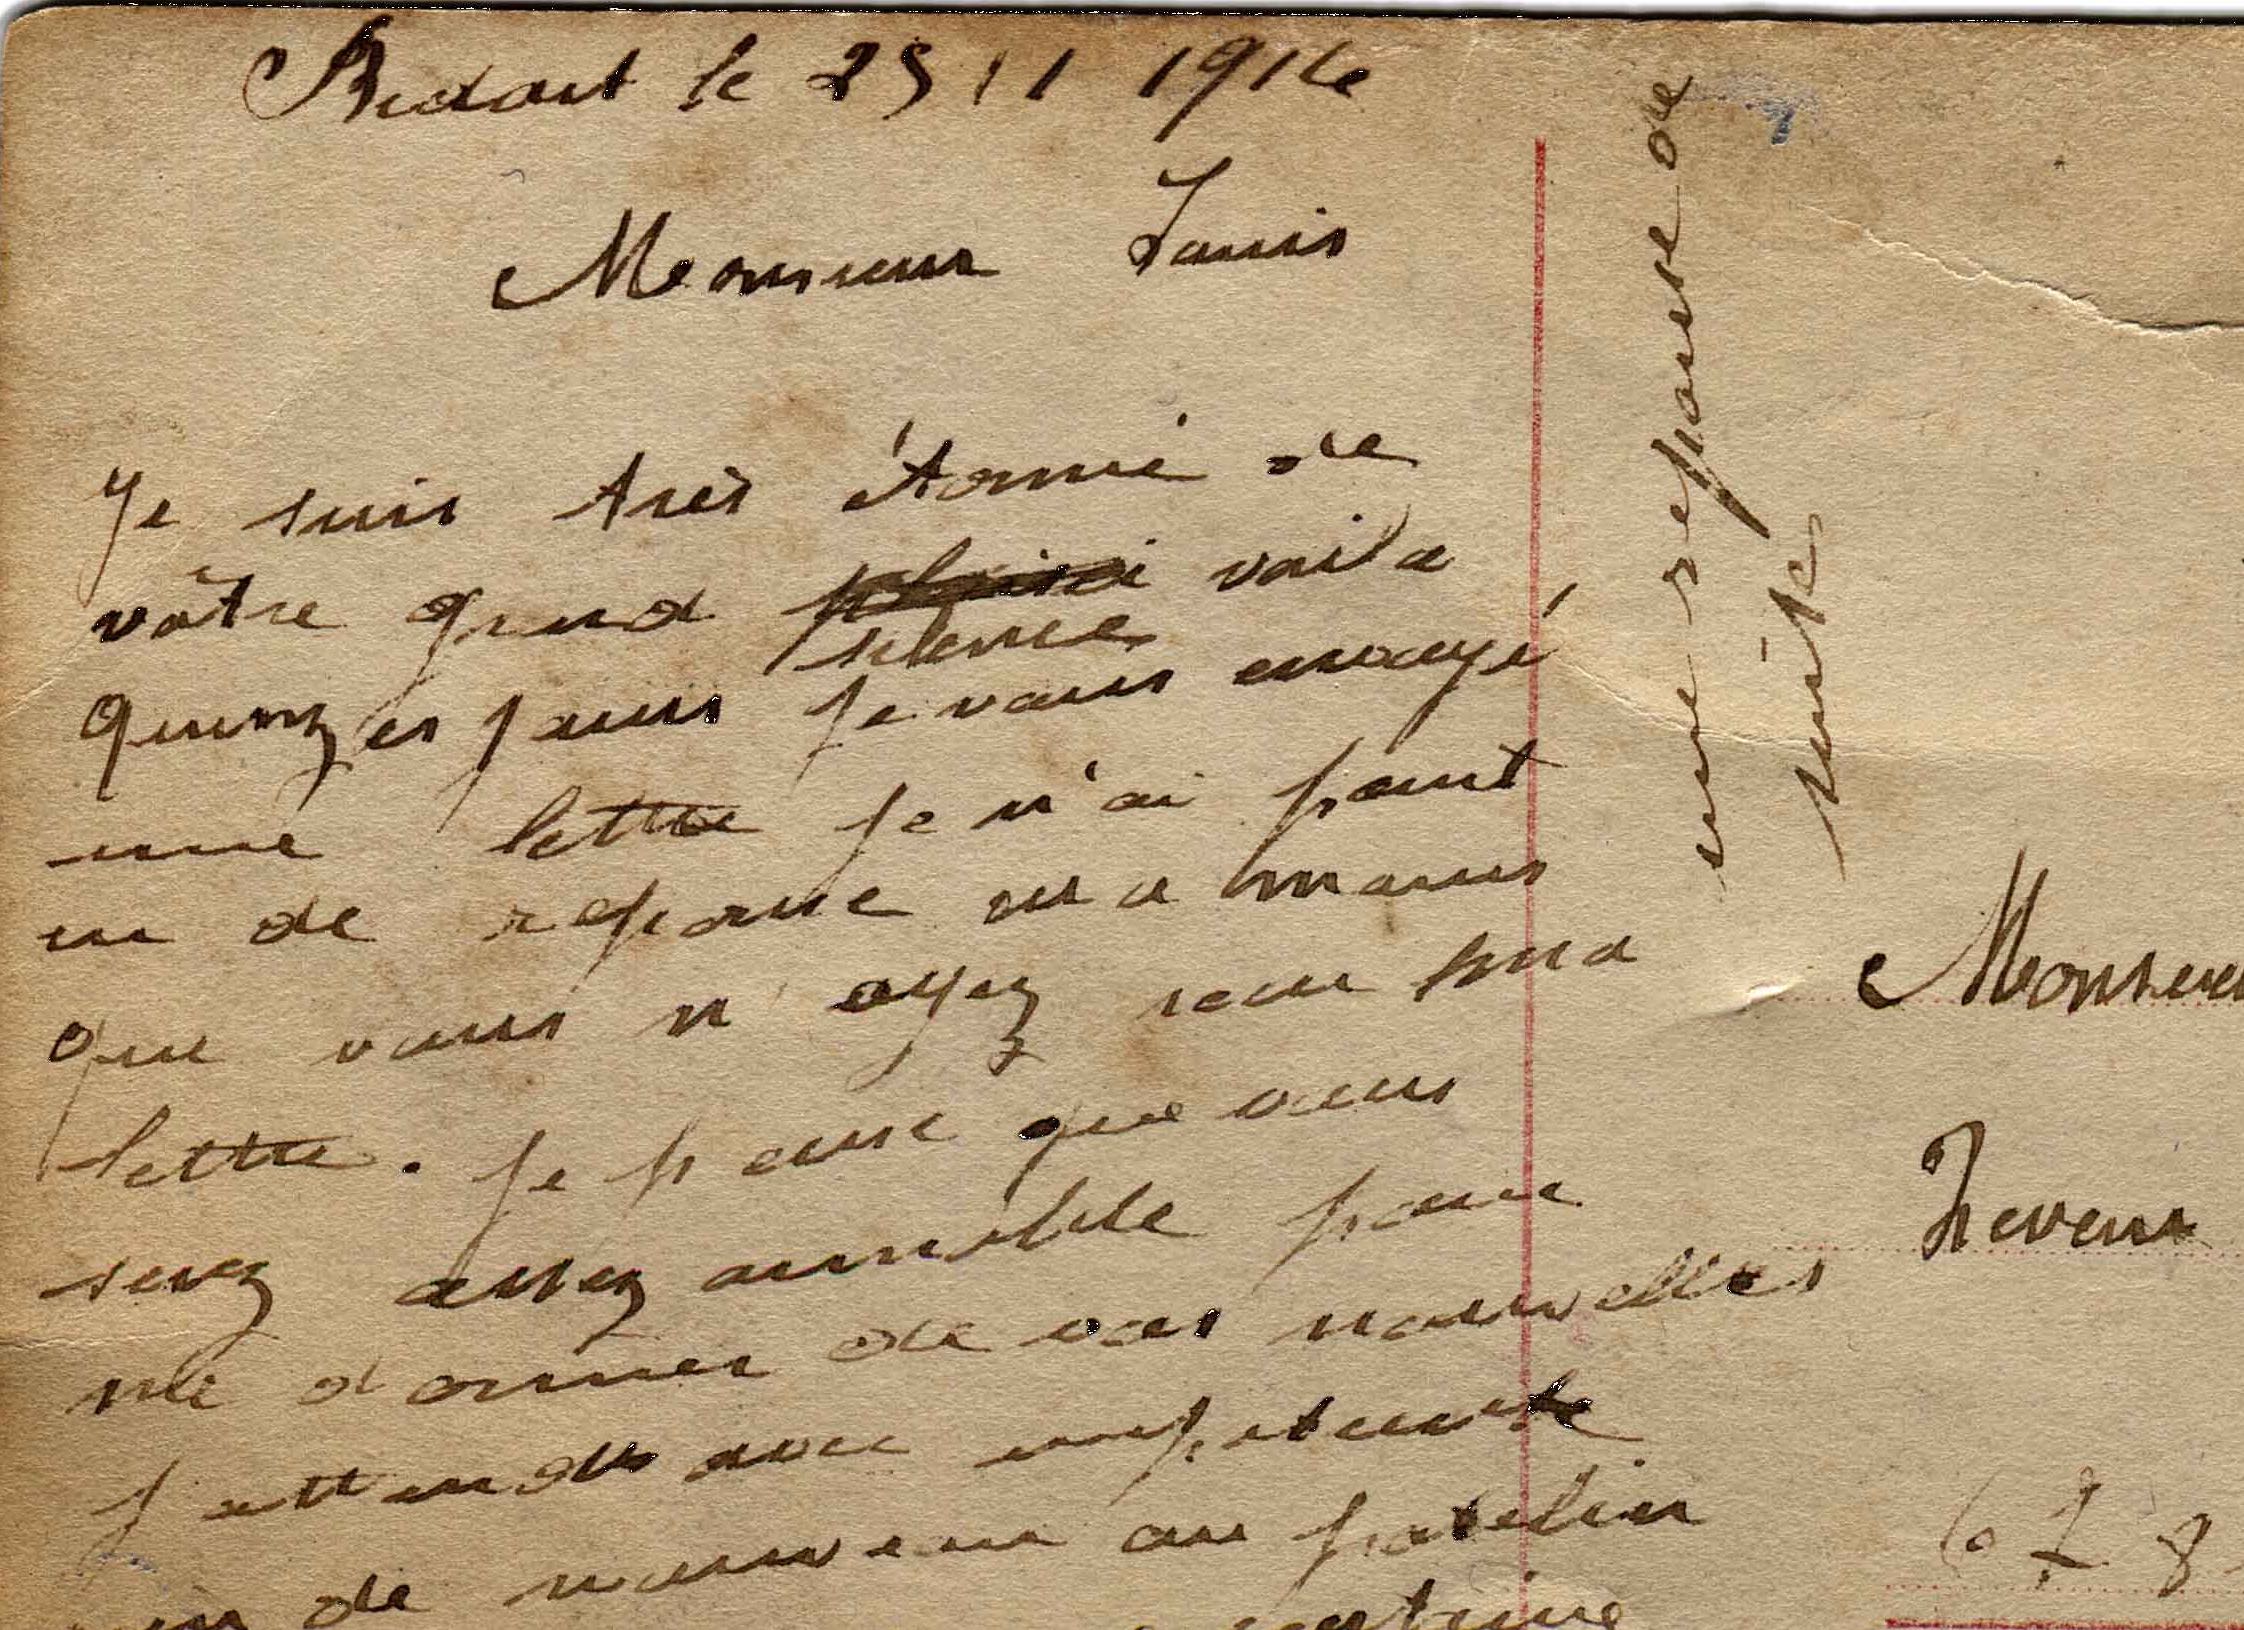 Bidart le 25 11 1916
Monsieur Louis
Je suis très étonné de
vôtre grand voila
silence
quinzes jours je vous envoyé
une lettre je n'ai point
eu de reponse ou a moins
que vous n'ayez recu ma
lettre. je pense que vous
serez assez aimable pour
me donner de vos nouvelles
j attends avec impatiente
rien de nouveau au patelin
une reponse de
suite
Monsieu
67 8